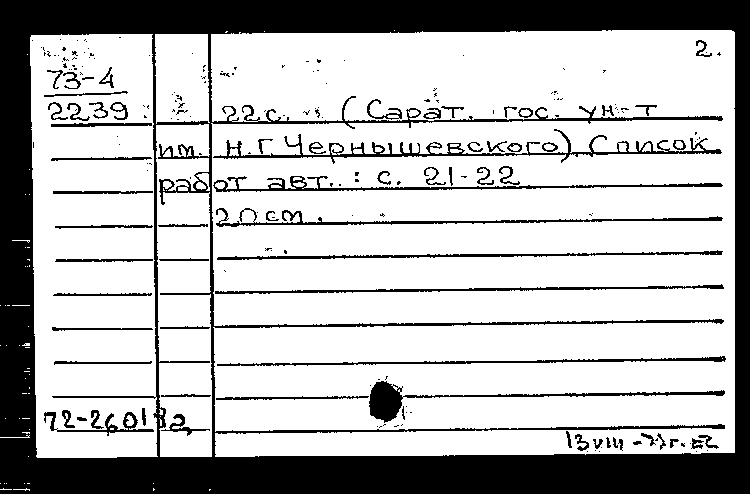 2.
73-4
2239 22с. (Сарат. гос. ун-т
им. Н.Г.Чернышевского). Список
работ авт.: с. 21-22
20см.
13 VIII